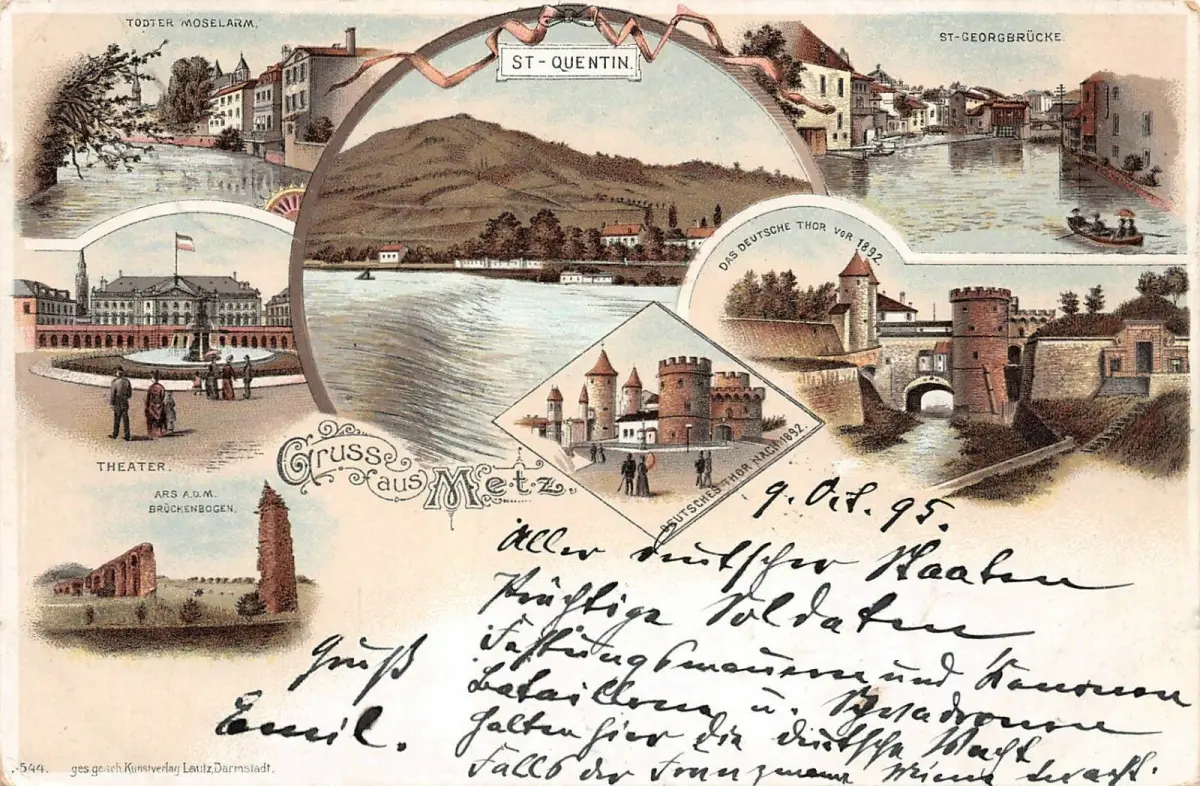 TODTER MOSELARM.
ST-QUENTIN.
ST-GEORGBRÜCKE.
DAS DEUTSCHE THOR VOR 1892.
THEATER.
Gruss
aus Metz.
DEUTSCHES THOR NACH 1892.
ARS A.D.M.
BRÜCKENBOGEN.
9. Oct. 95.
Aller deutscher Staaten
Prächtige Soldaten
Festungsmauern und Kanonen
Bataillone u. Schwadronen
Halten hier die deutsche Wacht
Falls der Franzmann
Gruß
Emil.
-544. ges. gesch. Kunstverlag Lautz, Darmstadt.